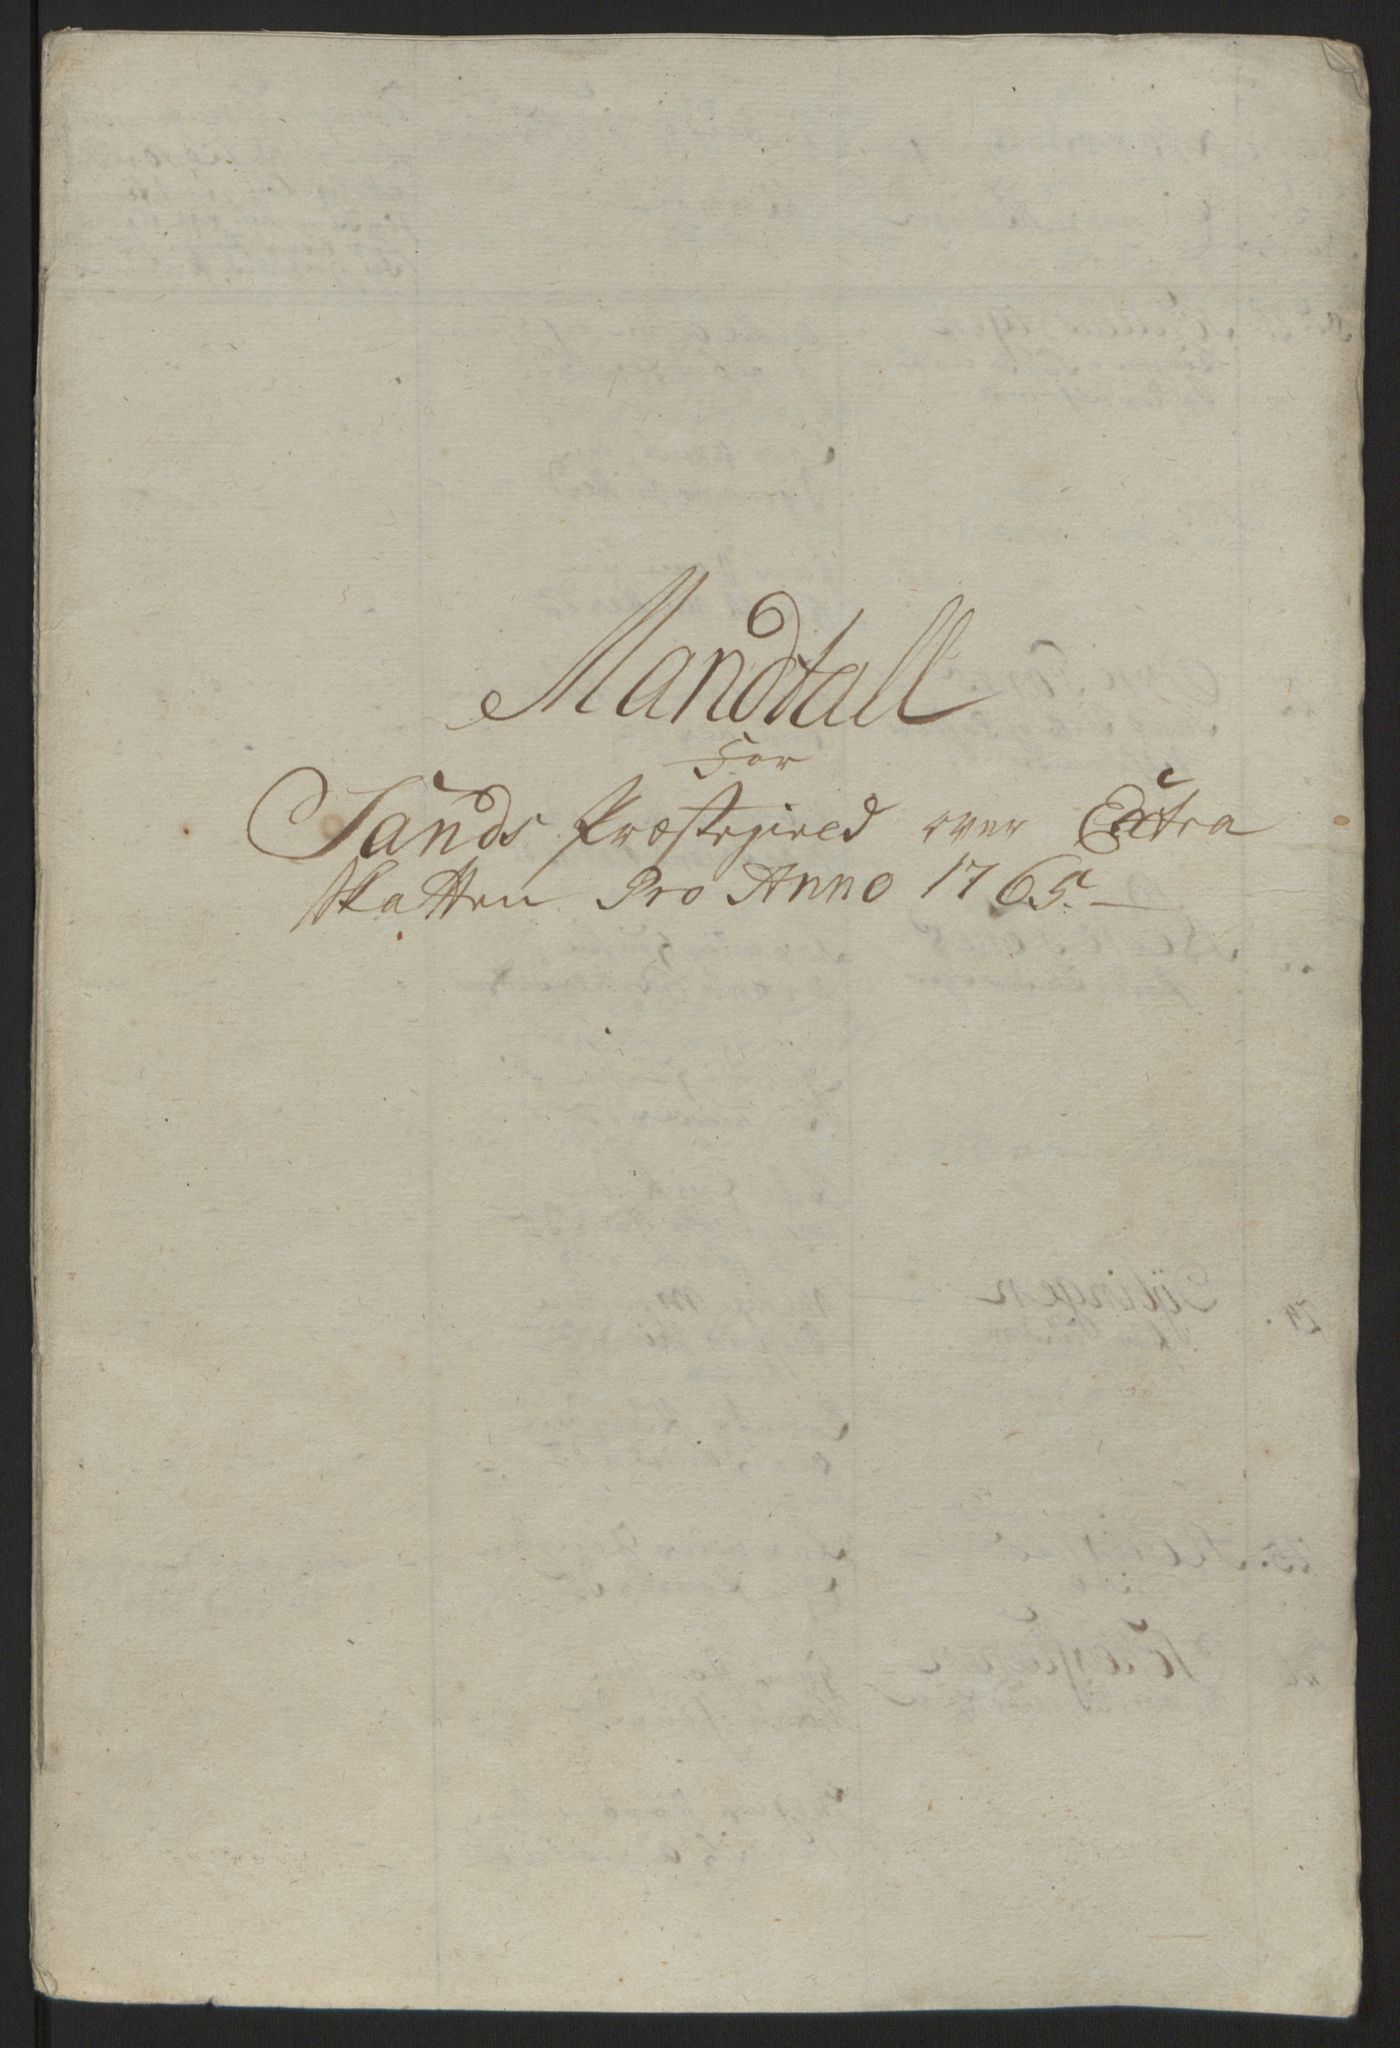 Mandtall
For
Sands Præstegield over Extra
Skatten Pro Anno 1765.